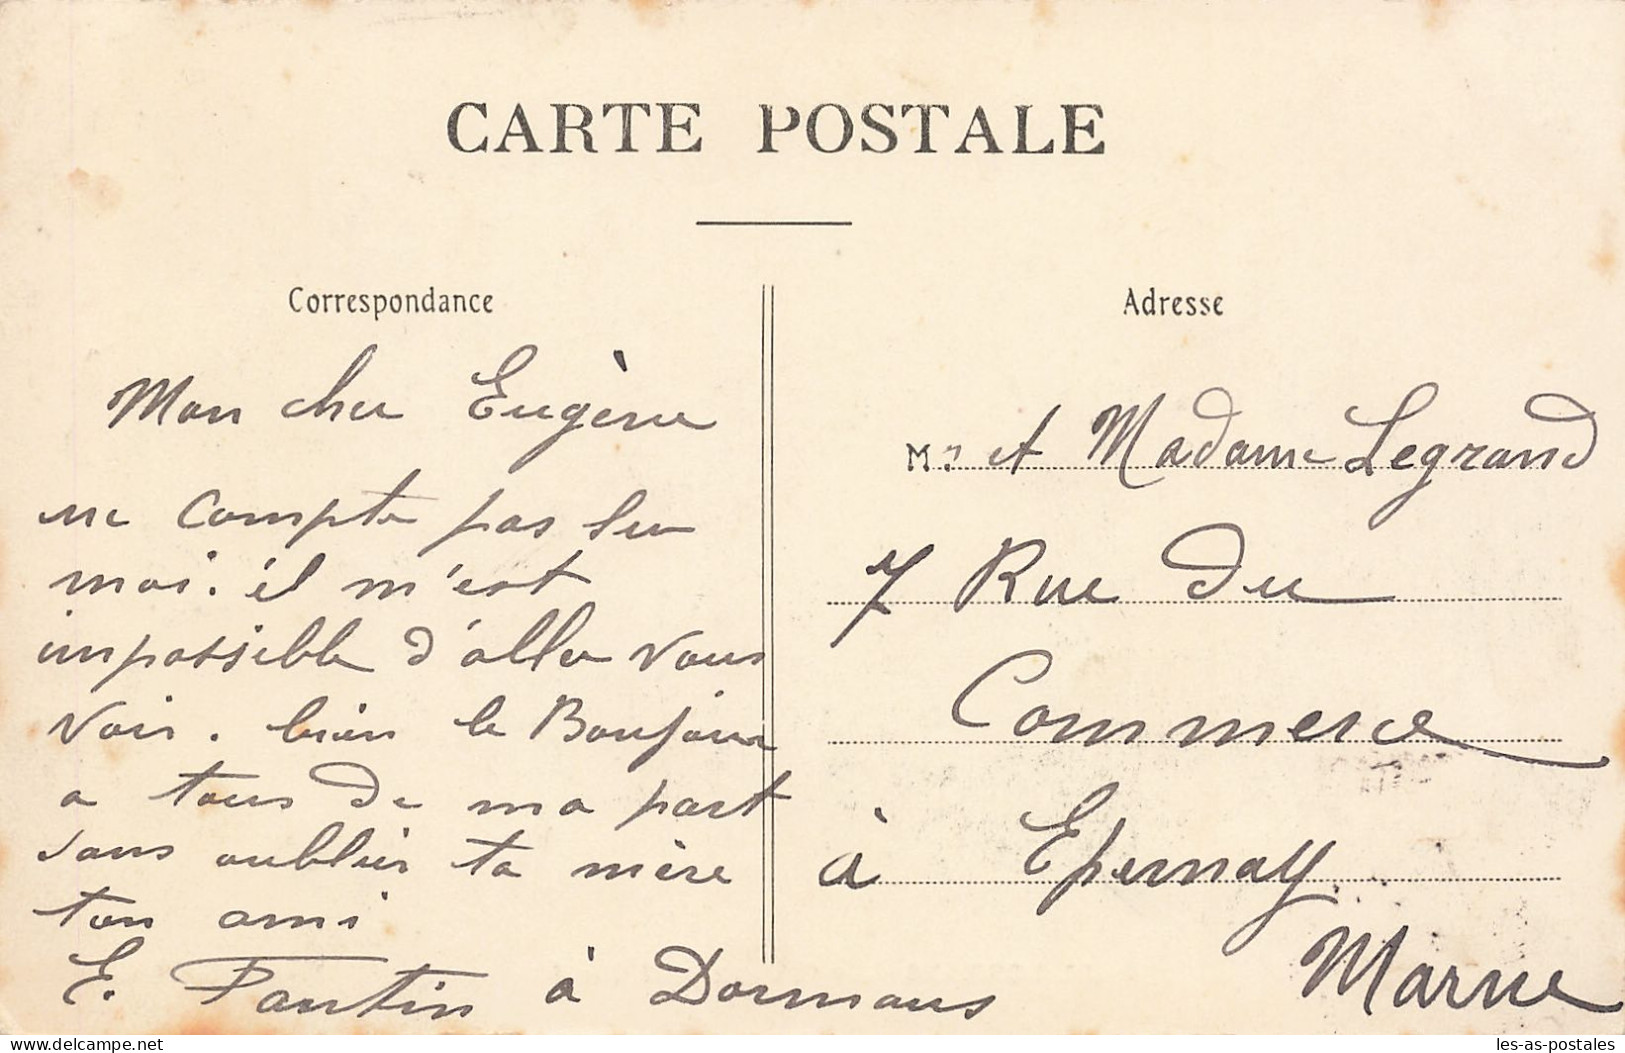 CARTE POSTALE
Correspondance
Mon cher Eugène
ne compte pas sur
moi. il m'est
impossible d'aller vous
voir. bien le Bonjour
a tous de ma part
sans oublier ta mère
ton ami
E. Fantin à Dormans
Adresse
M. et Madame Legrand
7 Rue du
Commerce
à Epernay
Marne
delcampe.net
les-as-postales